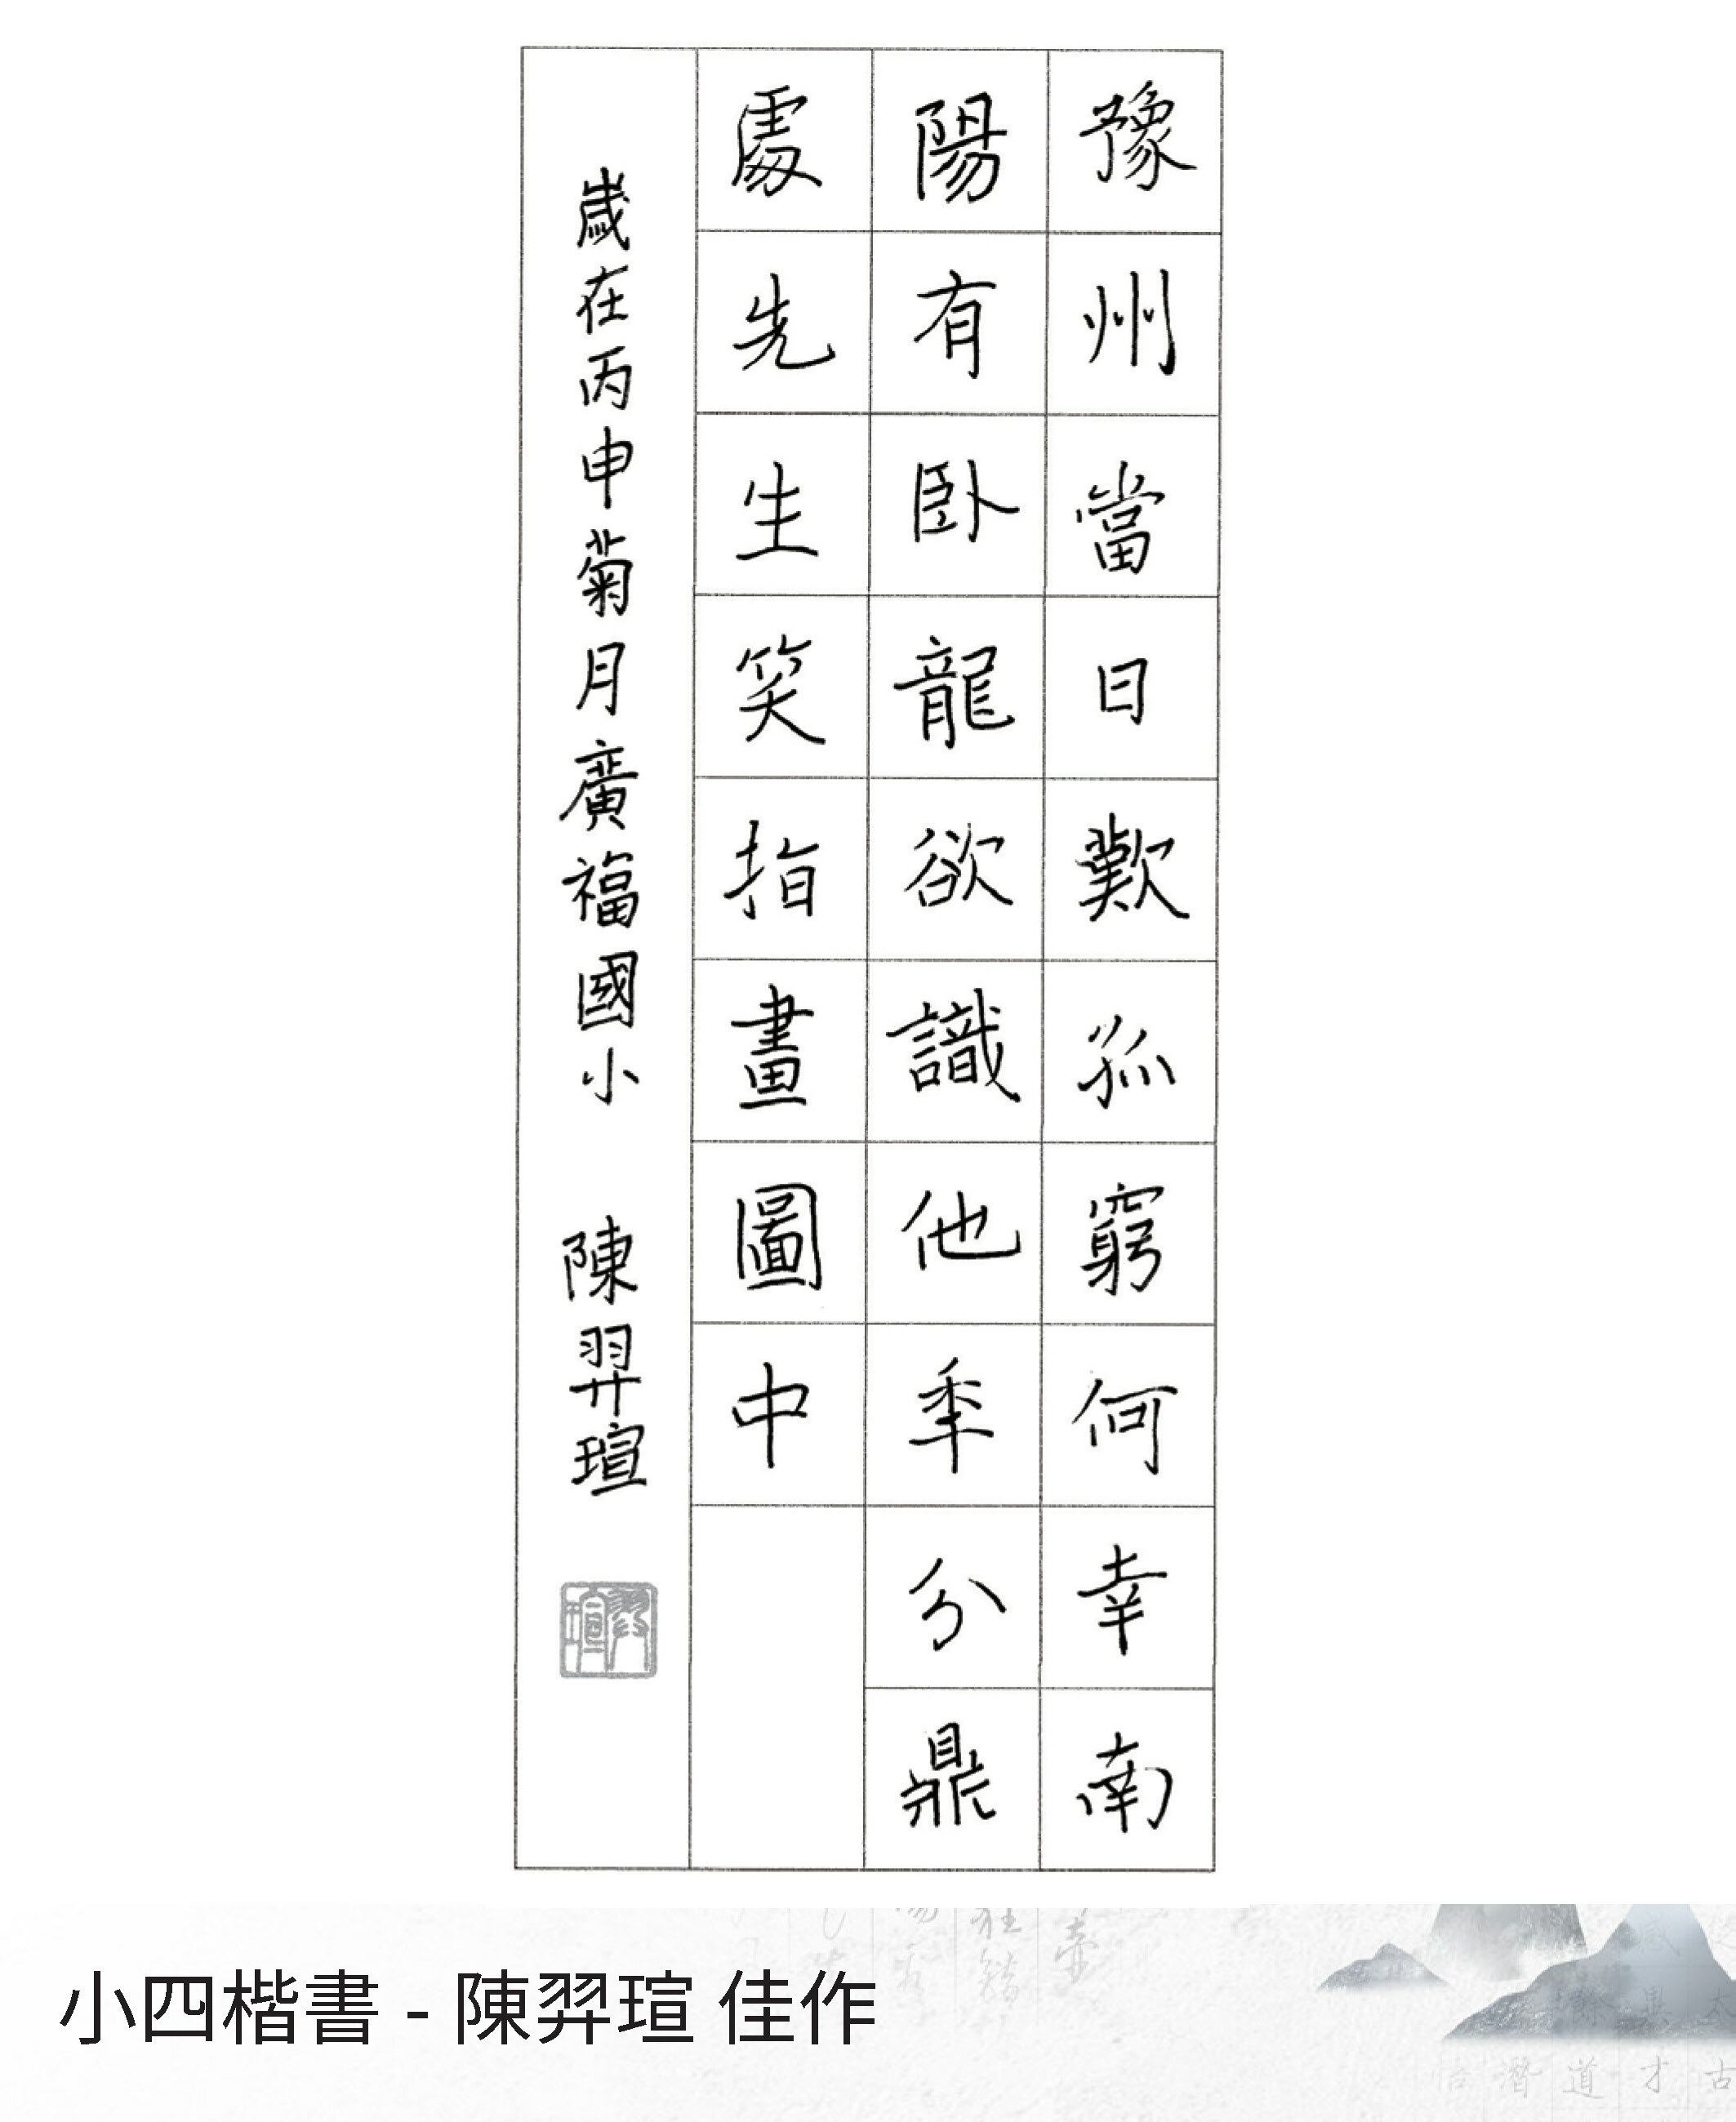 豫州當日歎孤窮何幸南
陽有卧龍欲識他年分鼎
處先生笑指畫圖中
歲在丙申菊月廣福國小 陳羿瑄
羿瑄
小四楷書 - 陳羿瑄 佳作